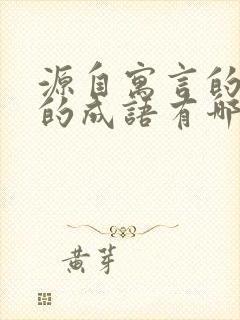 源自寓言的
的成語有哪
黄芽